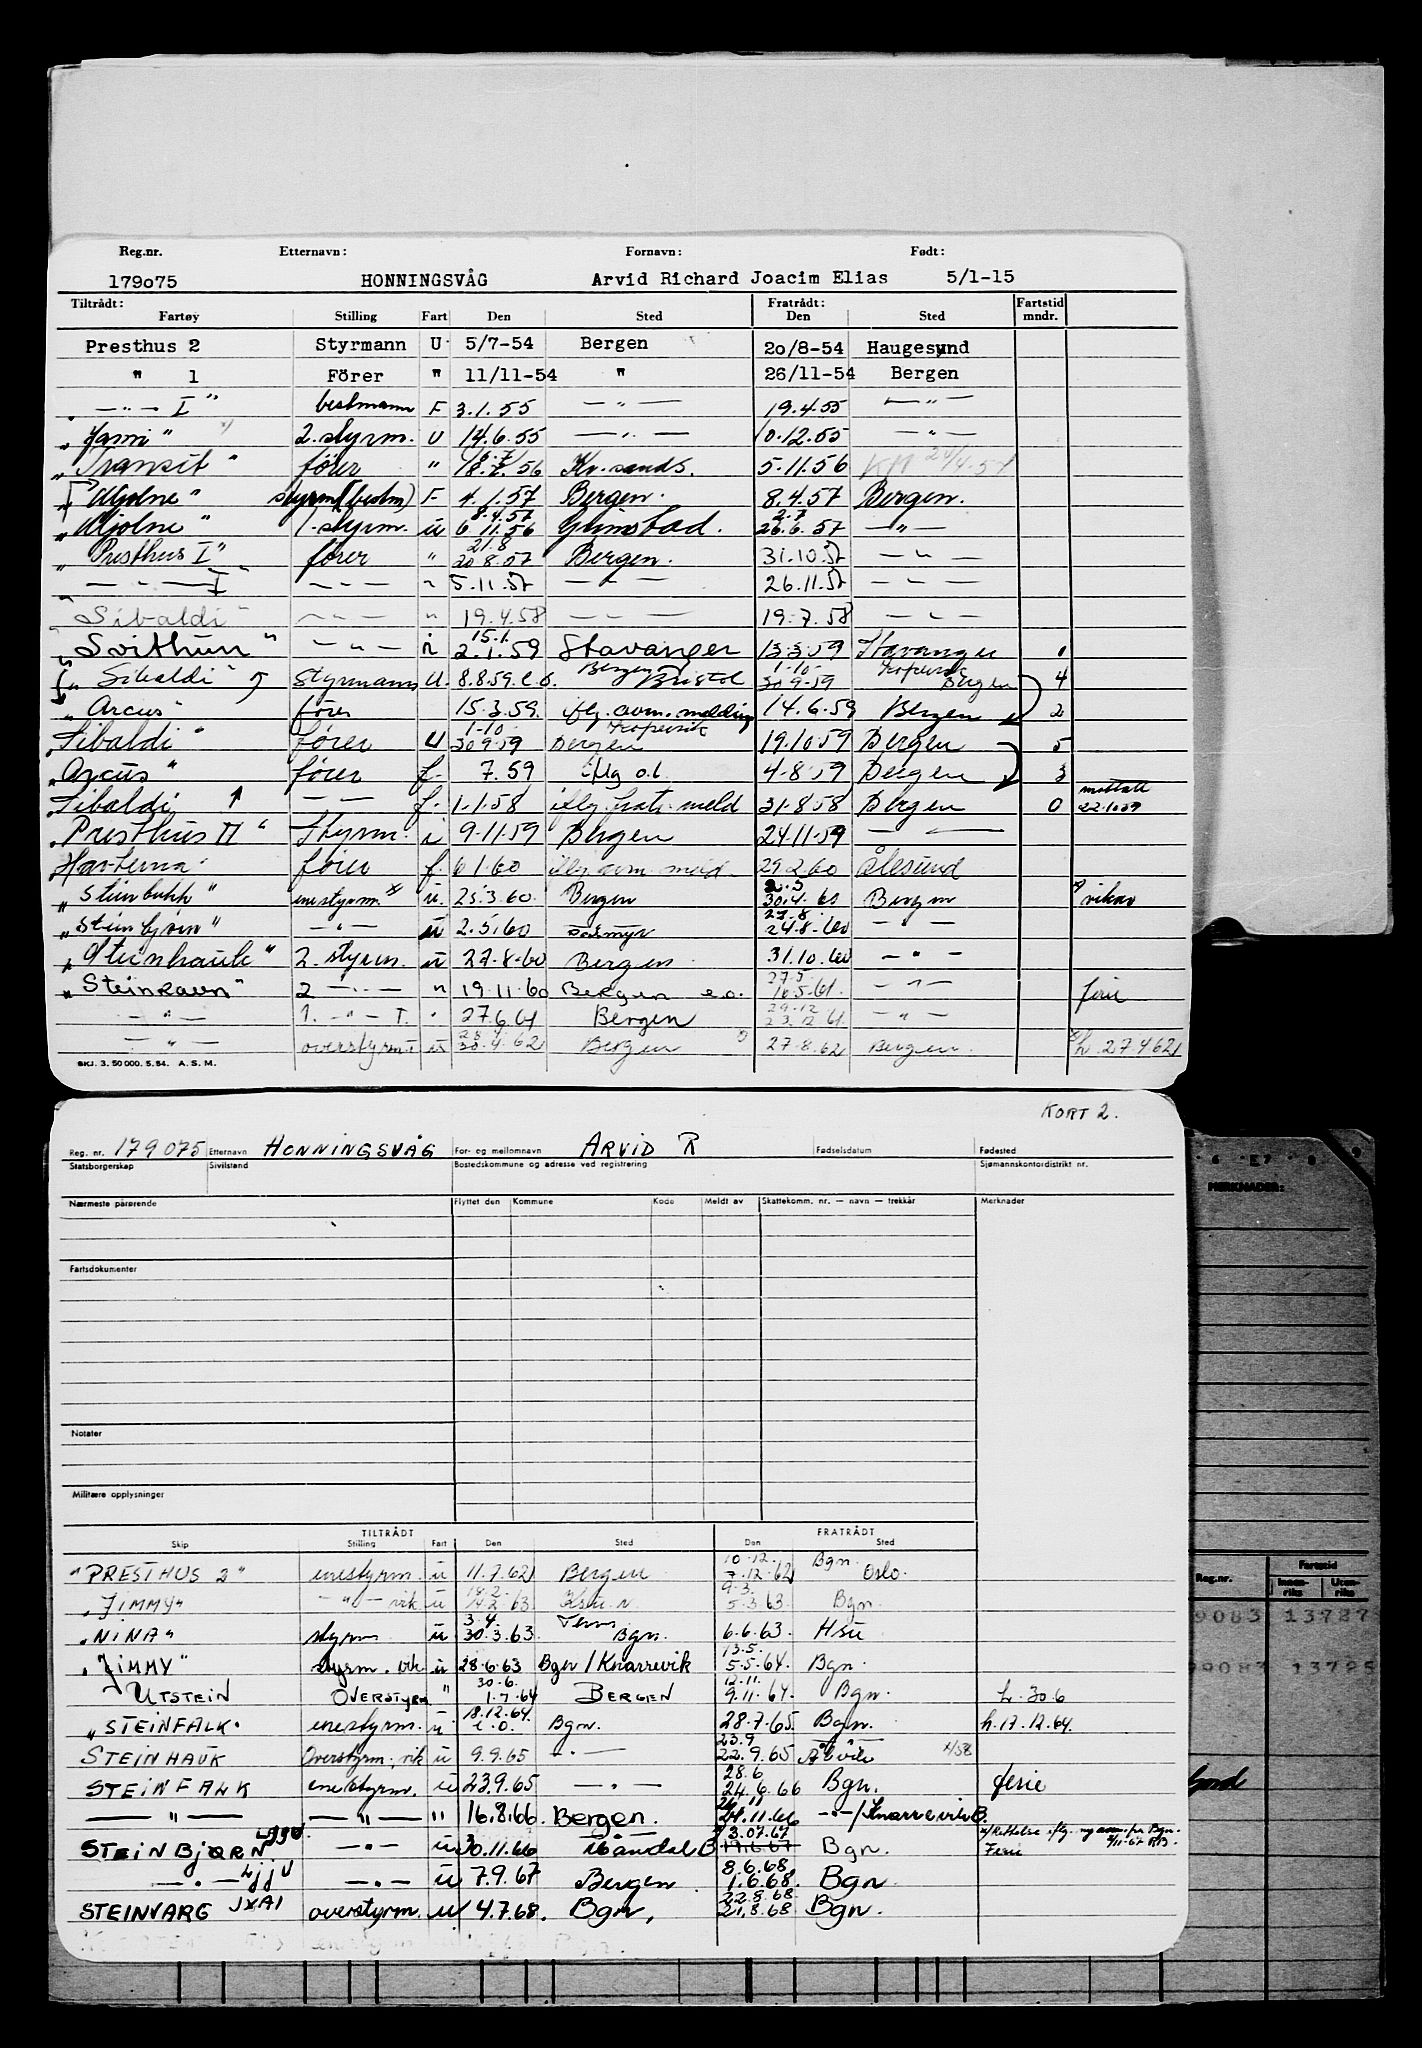 Reg.nr. Etternavn: Fornavn: Født:
179o75 HONNINGSVÅG Arvid Richard Joacim Elias 5/1-15
Tiltrådt: Fratrådt: Fartstid
Fartøy Stilling Fart Den Sted Den Sted mndr.
Presthus 2 Styrmann U 5/7-54 Bergen 2o/8-54 Haugesund
" 1 Förer " 11/11-54 " 26/11-54 Bergen
" — " — I " bestmann F 3.1.55 — " — 19.4.55 — " —
" Jarni " 2. styrm. U 14.6.55 — " — 10.12.55 — " —
" Transit " förer " 56 Kr.sands. 5.11.56
" Mjolne " styrm (bestm) F 4.1.57 Bergen. 8.4.57 Bergen.
8.4.57 2.7
" Mjolne " 1. styrm. u 6 11.56 Grimstad. 26.6.57 — " —
21.8
" Presthus I " förer " 20.8.57 Bergen. 31.10.57 — " —
— " — I " — " — " 5.11.57 — " — 26.11.57 — " —
" Sibaldi " — " — " 19.4.58 — " — 19.7.58 — " —
15.1.
" Svithun " — " — i 2.1.59 Stavanger 13.3.59 Stavanger 0
Bergen 1-10- Kopervik
" Sibaldi " styrmann U. 8.8.59. e.o. Bristol 30 9-59 Bergen 4
" Arcus " förer 15.3.59. iflg. avm. melding 14.6.59 Bergen 2
1-10- Kopervik
" Sibaldi " förer U 30 9 59 Bergen 19.10.59 Bergen 5
" Arcus " förer f. 7.59 iflg o.l. 4-8-59 Bergen 3
mottatt
" Sibaldi — " — f. 1-1-58 iflg fratr. meld 31-8-58 Bergen 0 22.10 59
" Presthus II " Styrm. i 9-11-59 Bergen 24-11-59 — " —
Havterna förer f. 6 1.60 iflg avm. meld. 29 2 60 Ålesund
2.5
" Steinbukk " enestyrm. x) u. 25.3.60. Bergen 30.4.60 Bergen x) vikar
27.8.
" Steinbjörn " — " — u 2.5.60 24.8.60 — " —
" Steinhauk " 2. styrm. u 27-8-60 Bergen 31.10.60 — " —
27.5.
" Steinravn " 2 — " — " 19.11.60 Bergen e.o. 16.5.61. — " — ferie
29.12
— " — 1. — " — T. " 27.6 61 Bergen 23.12 61. — " —
— " — overstyrm u 30.4.62 Bergen 27-8.62 Bergen. h. 27.4 62
SKJ. 3. 50 000. 5.54. A.S.M.
KORT 2.
Reg. nr. 179075 Etternavn HONNINGSVÅG For- og mellomnavn ARVID R Fødselsdatum Fødested
Statsborgerskap Sivilstand Bostedskommune og adresse ved registrering Sjømannskontordistrikt nr.
Nærmeste pårørende Flyttet den Kommune Kode Meldt av Skattekomm. nr. — navn — trekkår Merknader
Fartsdokumenter
Notater
Militære opplysninger
TILTRÅDT FRATRÅDT
Skip Stilling Fart Den Sted Den Sted
10.12. Bgn.
" PRESTHUS 2 " enestyrm. u 11.9.62 Bergen 7.12.62 Oslo.
9.3.
" JIMMY " — " — vik u 14.2.63 5.3 63. Bgn.
3.4.
" NINA " styrm u 30.3.63. Bgn. 6.6.63. Hsu
13.5.
" JIMMY " styrm. vik u 28.6.63 Bgn / Knarrevik 5.5.64. Bgn.
30.6. 12.11.
UTSTEIN OVERSTYRM " 1.7.64 BERGEN 9.11.64. Bgn. h. 30.6
18.12.64.
" STEINFALK " enestyrm. u e.o. Bgn. 28.7.65. Bgn. h. 17.12.64.
23.9
STEINHAUK Overstyrm. vik u 9.9.65 — " — 22.9.65 x/58
28.6
STEINFALK enestyrm. u 23.9.65 — " — 24.6.66 Bgn. ferie
26 11
— " — — " — " 16.8.66. Bergen. 24.11.66 — " — / Knarrevik B.
LJJU 3.07.67
STEINBJØRN — " — u 30.11.66 Måndal B 19.6.67 Bgn. Ferie
8.6.68
— " — LJJU — " — u 7.9.67 Bergen 1.6.68. Bgn
22.8.68
STEINVARG JXAI overstyrm. u 4.7.68. Bgn, 21.8.68 Bgn.
MERKNADER:
Reg.nr. Fartstid
Innenriks Utenriks
9083 13727
99083 13725